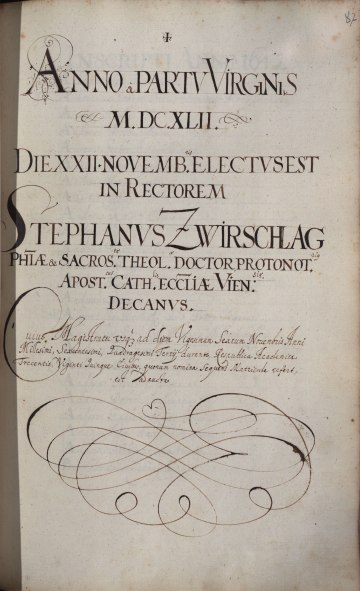 182
ANNO a PARTV VIRGINIS
M.DC.XLII.
DIE XXII. NOVEMB. ELECTVS EST
IN RECTOREM
STEPHANVS ZWIRSCHLAG
PHIÆ & SACROS. THEOL. DOCTOR PROTONOT.
APOST. CATH. ECCLIÆ VIEN.
DECANVS.
Cuius Magistratu ad diem Vigesimam Sextam Novembris Anni
Millesimi, Sexcentesimi, Quadragesimi Tertij durante, Respublica Academica
Trecentis, Viginti Quinque Civibus, quorum nomina Sequens Matricula refert,
est